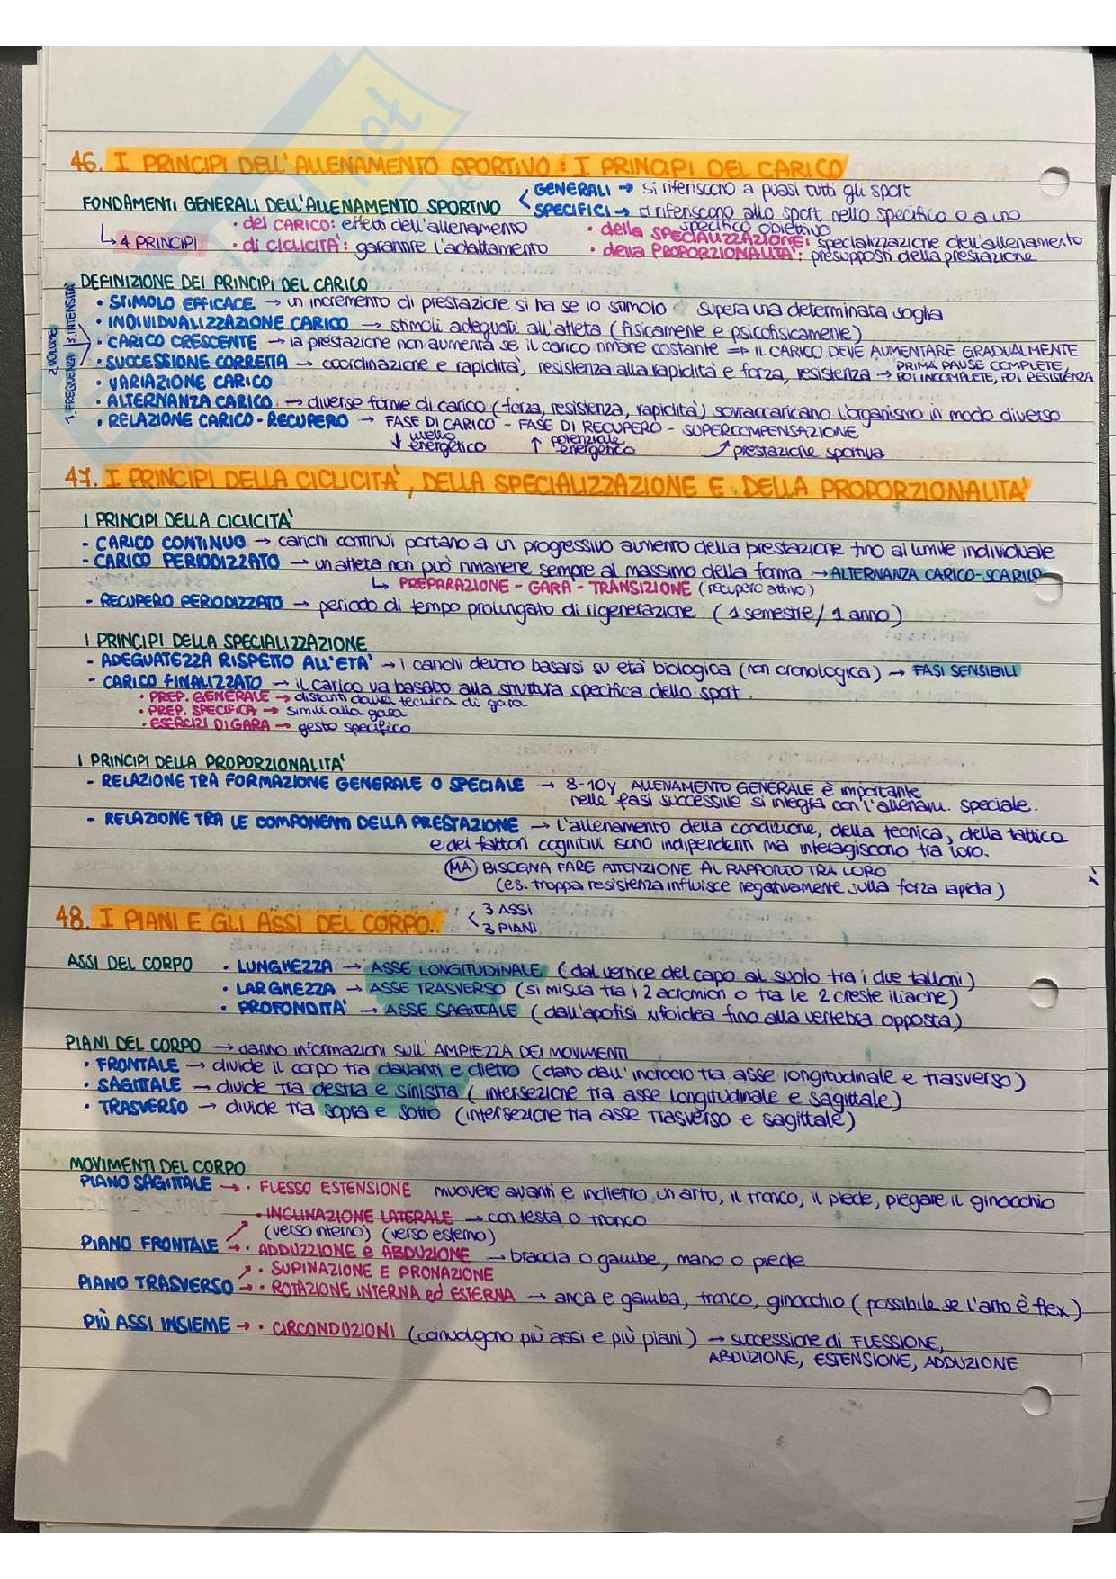 46. I PRINCIPI DELL'ALLENAMENTO SPORTIVO: I PRINCIPI DEL CARICO
FONDAMENTI GENERALI DELL'ALLENAMENTO SPORTIVO
GENERALI → si riferiscono a quasi tutti gli sport
SPECIFICI → si riferiscono allo sport nello specifico o a uno specifico obiettivo
4 PRINCIPI
• del CARICO: effetti dell'allenamento
• di CICLICITÀ: garantire l'adattamento
• della SPECIALIZZAZIONE: specializzazione dell'allenamento
• della PROPORZIONALITÀ: presupposti della prestazione
DEFINIZIONE DEI PRINCIPI DEL CARICO
• STIMOLO EFFICACE → un incremento di prestazione si ha se lo stimolo supera una determinata soglia
• INDIVIDUALIZZAZIONE CARICO → stimoli adeguati all'atleta (fisicamente e psicofisicamente)
1. FREQUENZA
2. VOLUME
3. INTENSITÀ
• CARICO CRESCENTE → la prestazione non aumenta se il carico rimane costante => IL CARICO DEVE AUMENTARE GRADUALMENTE
• SUCCESSIONE CORRETTA → coordinazione e rapidità, resistenza alla rapidità e forza, resistenza → PRIMA PAUSE COMPLETE, POI INCOMPLETE, POI RESISTENZA
• VARIAZIONE CARICO
• ALTERNANZA CARICO → diverse forme di carico (forza, resistenza, rapidità) sovraccaricano l'organismo in modo diverso
• RELAZIONE CARICO-RECUPERO → FASE DI CARICO - FASE DI RECUPERO - SUPERCOMPENSAZIONE
↓ livello energetico ↑ potenziale energetico ↗ prestazione sportiva
47. I PRINCIPI DELLA CICLICITÀ, DELLA SPECIALIZZAZIONE E DELLA PROPORZIONALITÀ
I PRINCIPI DELLA CICLICITÀ
- CARICO CONTINUO → carichi continui portano a un progressivo aumento della prestazione fino al limite individuale
- CARICO PERIODIZZATO → un atleta non può rimanere sempre al massimo della forma → ALTERNANZA CARICO-SCARICO
↳ PREPARAZIONE - GARA - TRANSIZIONE (recupero attivo)
- RECUPERO PERIODIZZATO → periodo di tempo prolungato di rigenerazione (1 semestre / 1 anno)
I PRINCIPI DELLA SPECIALIZZAZIONE
- ADEGUATEZZA RISPETTO ALL'ETÀ → i carichi devono basarsi su età biologica (non cronologica) → FASI SENSIBILI
- CARICO FINALIZZATO → il carico va basato alla struttura specifica dello sport.
• PREP. GENERALE → distanti dalla tecnica di gara
• PREP. SPECIFICA → simili alla gara
• ESERCIZI DI GARA → gesto specifico
I PRINCIPI DELLA PROPORZIONALITÀ
- RELAZIONE TRA FORMAZIONE GENERALE O SPECIALE → 8-10y ALLENAMENTO GENERALE è importante
nelle fasi successive si integra con l'allenam. speciale.
- RELAZIONE TRA LE COMPONENTI DELLA PRESTAZIONE → l'allenamento della condizione, della tecnica, della tattica
e dei fattori cognitivi sono indipendenti ma interagiscono tra loro.
(MA) BISOGNA FARE ATTENZIONE AL RAPPORTO TRA LORO
(es. troppa resistenza influisce negativamente sulla forza rapida)
48. I PIANI E GLI ASSI DEL CORPO.
3 ASSI
3 PIANI
ASSI DEL CORPO • LUNGHEZZA → ASSE LONGITUDINALE (dal vertice del capo al suolo tra i due talloni)
• LARGHEZZA → ASSE TRASVERSO (si misura tra i 2 acromion o tra le 2 creste iliache)
• PROFONDITÀ → ASSE SAGITTALE (dall'apofisi xifoidea fino alla vertebra opposta)
PIANI DEL CORPO → danno informazioni sull'AMPIEZZA DEI MOVIMENTI
• FRONTALE → divide il corpo tra davanti e dietro (dato dall'incrocio tra asse longitudinale e trasverso)
• SAGITTALE → divide tra destra e sinistra (intersezione tra asse longitudinale e sagittale)
• TRASVERSO → divide tra sopra e sotto (intersezione tra asse trasverso e sagittale)
MOVIMENTI DEL CORPO
PIANO SAGITTALE → • FLESSO ESTENSIONE muovere avanti e indietro un arto, il tronco, il piede, piegare il ginocchio
• INCLINAZIONE LATERALE → con testa o tronco
(verso interno) (verso esterno)
PIANO FRONTALE → • ADDUZZIONE e ABDUZIONE → braccia o gambe, mano o piede
• SUPINAZIONE E PRONAZIONE
PIANO TRASVERSO → • ROTAZIONE INTERNA ed ESTERNA → anca e gamba, tronco, ginocchio (possibile se l'arto è flex)
PIÙ ASSI INSIEME → • CIRCONDUZIONI (coinvolgono più assi e più piani) → successione di FLESSIONE,
ABDUZIONE, ESTENSIONE, ADDUZIONE